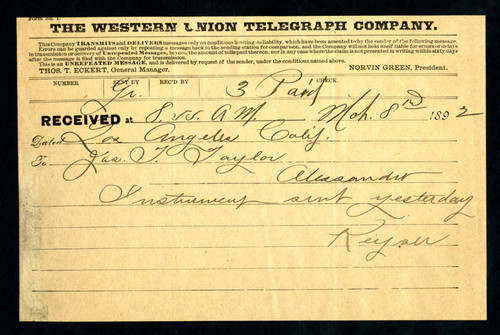 Form No. 1.
THE WESTERN UNION TELEGRAPH COMPANY.
This Company TRANSMITS and DELIVERS messages only on conditions limiting its liability, which have been assented to by the sender of the following message.
Errors can be guarded against only by repeating a message back to the sending station for comparison, and the Company will not hold itself liable for errors or delays
in transmission or delivery of Unrepeated Messages, beyond the amount of tolls paid thereon, nor in any case where the claim is not presented in writing within sixty days
after the message is filed with the Company for transmission.
This is an UNREPEATED MESSAGE, and is delivered by request of the sender, under the conditions named above.
THOS. T. ECKERT, General Manager. NORVIN GREEN, President.
NUMBER SENT BY REC'D BY CHECK
3 Paid
RECEIVED at AM. Mch. 8 1892
Dated Los Angeles Calif.
To Jas. T. Taylor
Alessandro
Instrument sent yesterday
Keyser